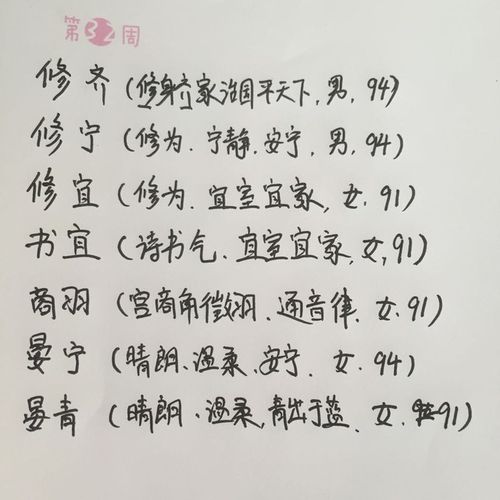 第32周
修齐(修身齐家治国平天下,男,94)
修宁(修为、宁静、安宁,男,94)
修宜(修为、宜室宜家,女,91)
书宜(诗书气、宜室宜家,女,91)
商羽(宫商角徵羽、通音律、女、91)
晏宁(晴朗、温柔、安宁、女、94)
晏青(晴朗、温柔,青出于蓝、女、91)